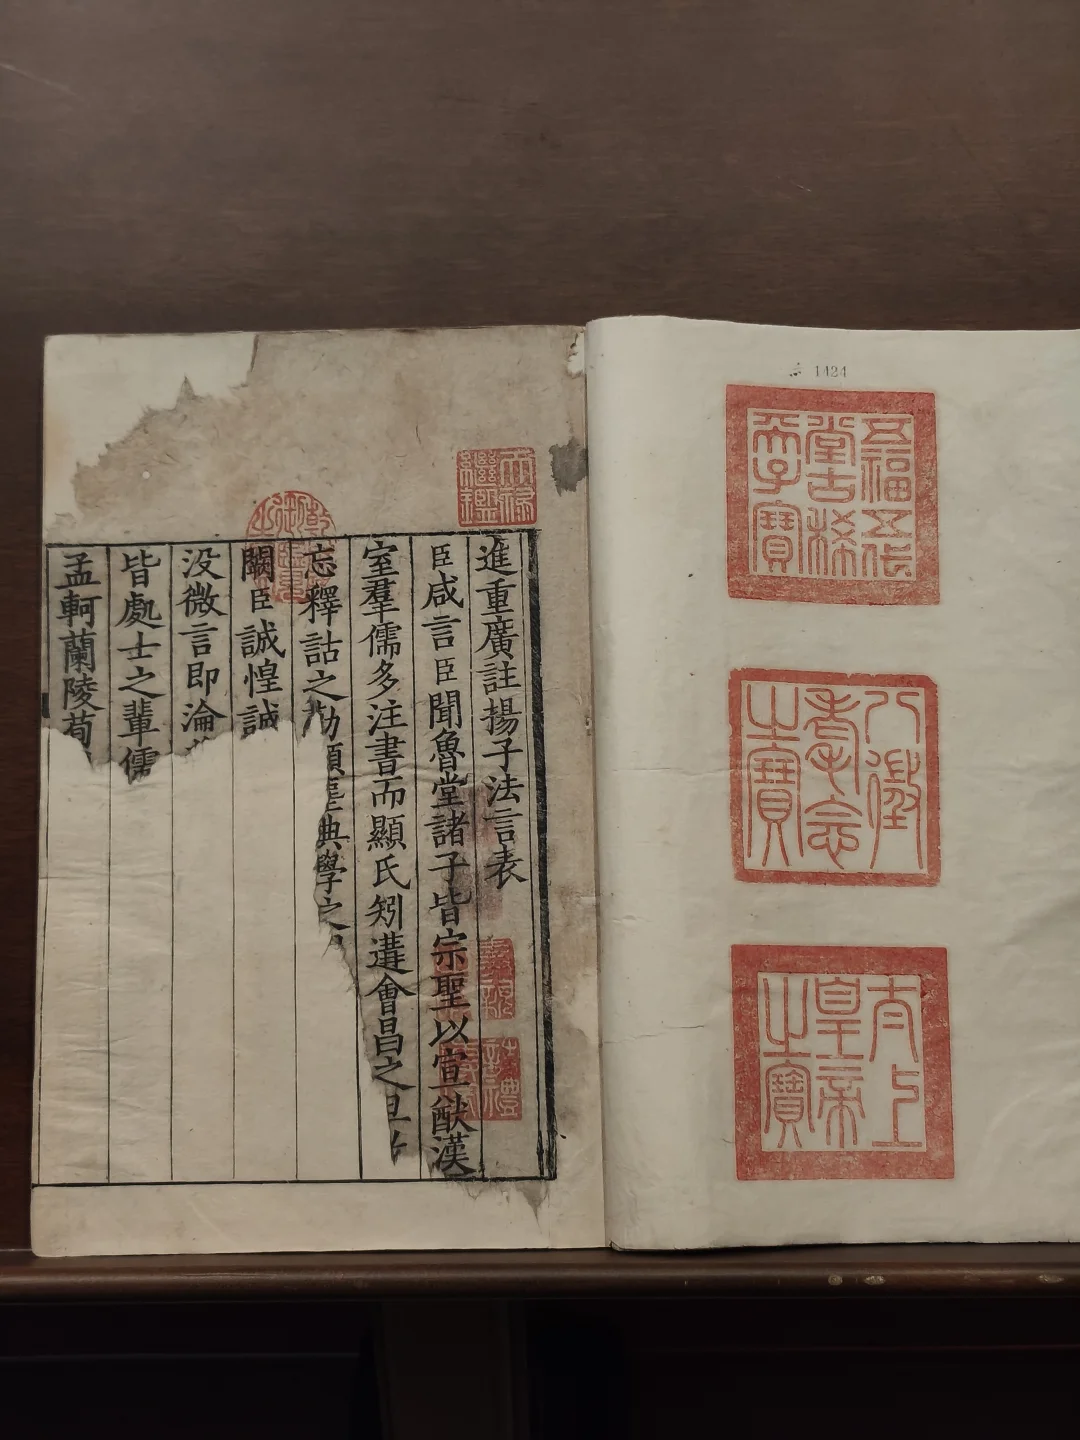 1424
五福五代
堂古稀
天子寶
八徵
耄念
之寶
太上
皇帝
之寶
天祿
繼鑑
進重廣註揚子法言表
臣咸言臣聞魯堂諸子皆宗聖以宣猷漢
室羣儒多注書而顯氏矧遘會昌之旦
忘釋詁之 典學之
闕臣誠惶誠
没微言即淪
皆處士之輩儒
孟軻蘭陵荀